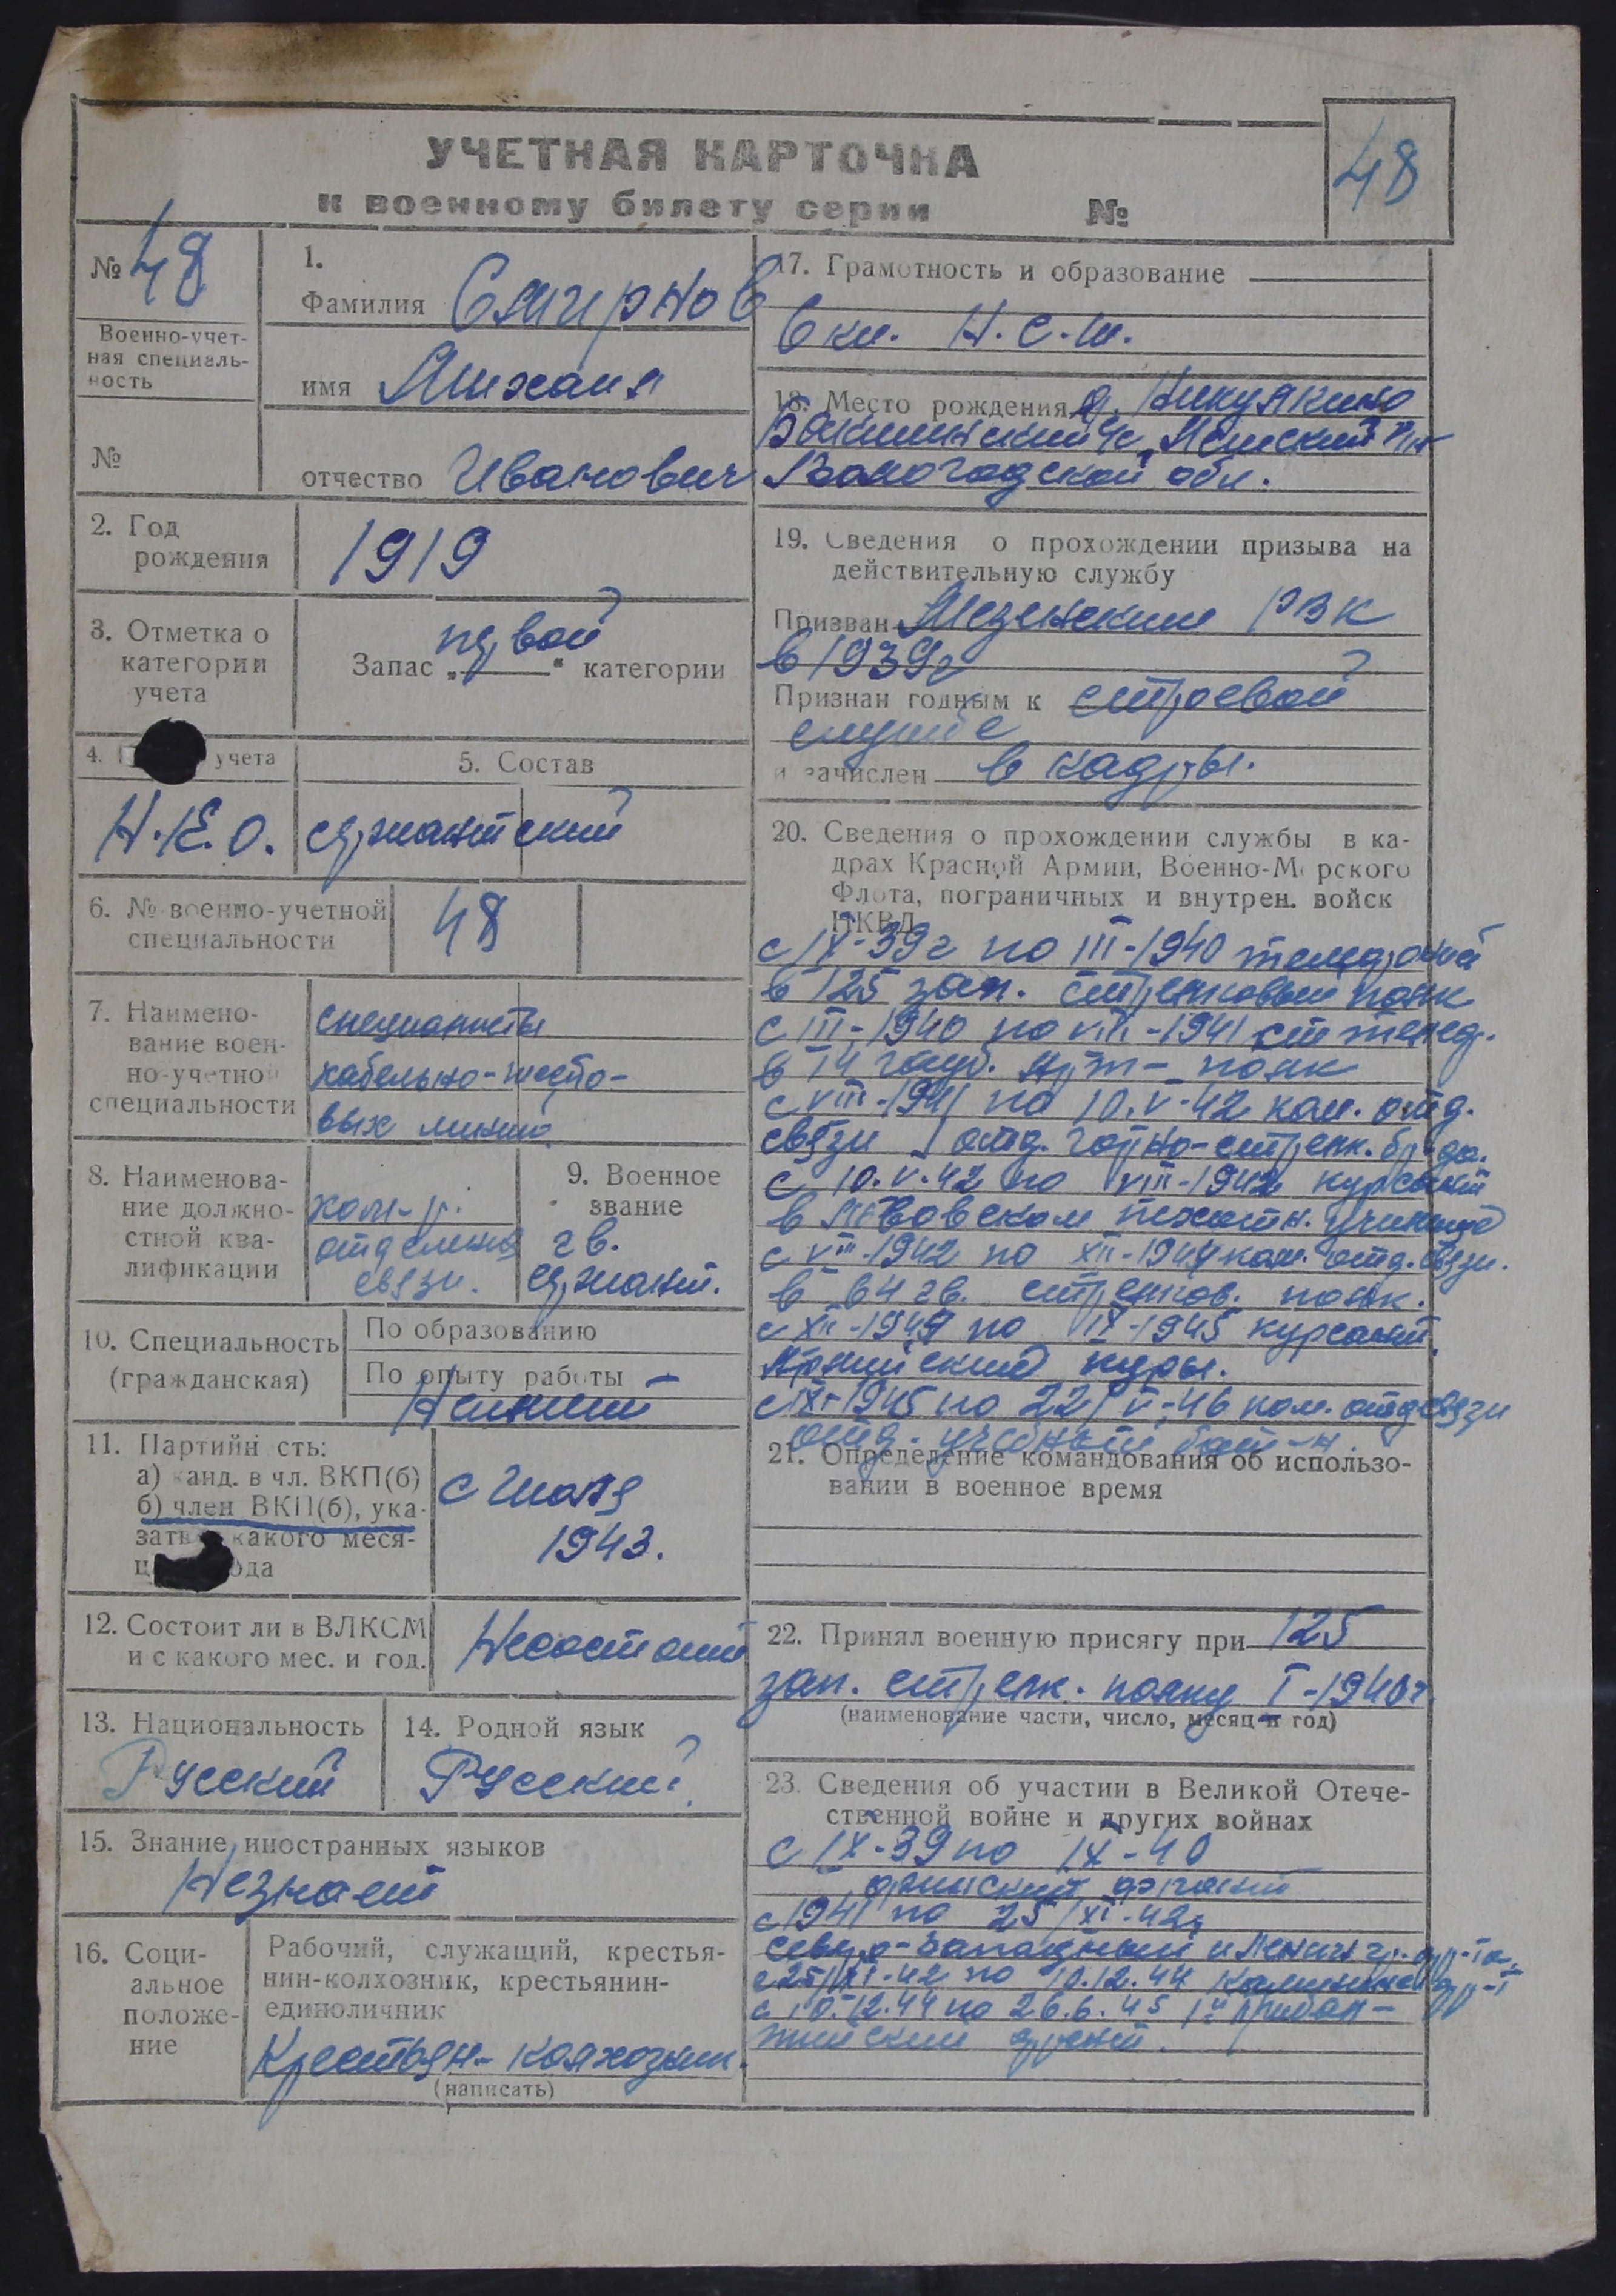 УЧЕТНАЯ КАРТОЧКА
к военному билету серии №
48
№ 48
Военно-учет-
ная специаль-
ность
№
1.
Фамилия Смирнов
имя Михаил
отчество Иванович
2. Год
рождения
1919
3. Отметка о
категории
учета
Запас „первой“ категории
4. учета
Н.К.О.
5. Состав
сержантский
6. № военно-учетной
специальности
48
7. Наимено-
вание воен-
но-учетной
специальности
специалисты
кабельно-шесто-
вых линий
8. Наименова-
ние должно-
стной ква-
лификации
ком-р.
отделения
связи.
9. Военное
звание
гв.
сержант.
10. Специальность
(гражданская)
По образованию
По опыту работы
Не имеет
11. Партийн сть:
а) канд. в чл. ВКП(б)
б) член ВКП(б), ука-
зать какого меся-
ц ода
с июля
1943.
12. Состоит ли в ВЛКСМ
и с какого мес. и год.
Несостоит
13. Национальность
Русский
14. Родной язык
Русский
15. Знание иностранных языков
Незнает
16. Соци-
альное
положе-
ние
Рабочий, служащий, крестья-
нин-колхозник, крестьянин-
единоличник
Крестьян-колхозник.
(написать)
17. Грамотность и образование
6 кл. Н.С.Ш.
18. Место рождения д.
с/с,
Вологодской обл.
19. Сведения о прохождении призыва на
действительную службу
Призван Мезенским РВК
в 1939г
Признан годным к строевой
службе
и зачислен в кадры.
20. Сведения о прохождении службы в ка-
драх Красной Армии, Военно-Морского
Флота, пограничных и внутрен. войск
НКВД
с IX-39г по III-1940 телефонист
в 125 зап. стрелковый полк
с III-1940 по VIII-1941 ст. телеф.
в 14 гауб. арт-полк
с VIII-1941 по 10.V-42 ком. отд.
связи отд. горно-стрелк. бригада.
с 10.V.42 по VIII-1942 курсант
в пехотн. училище
с VIII-1942 по XII-1944 ком. отд. связи.
в 64 гв. стрелков. полк.
с XII-1944 по IX-1945 курсант.
Армейские курсы.
с IX-1945 по 22/V-46 ком. отд связи
отд. учебный бат-н.
21. Определение командования об использо-
вании в военное время
22. Принял военную присягу при 125
зап. стрелк. полку I-1940г.
(наименование части, число, месяц и год)
23. Сведения об участии в Великой Отече-
ственной войне и других войнах
с IX-39 по IX-40
финский фронт
с 1941 по 25/XI-42г
Северо-Западный и Ленингр. фр-та.
с 25/XI-42 по 10.12.44 Калининск. фр-т
с 10.12.44 по 26.6.45 1й Прибал-
тийский фронт.